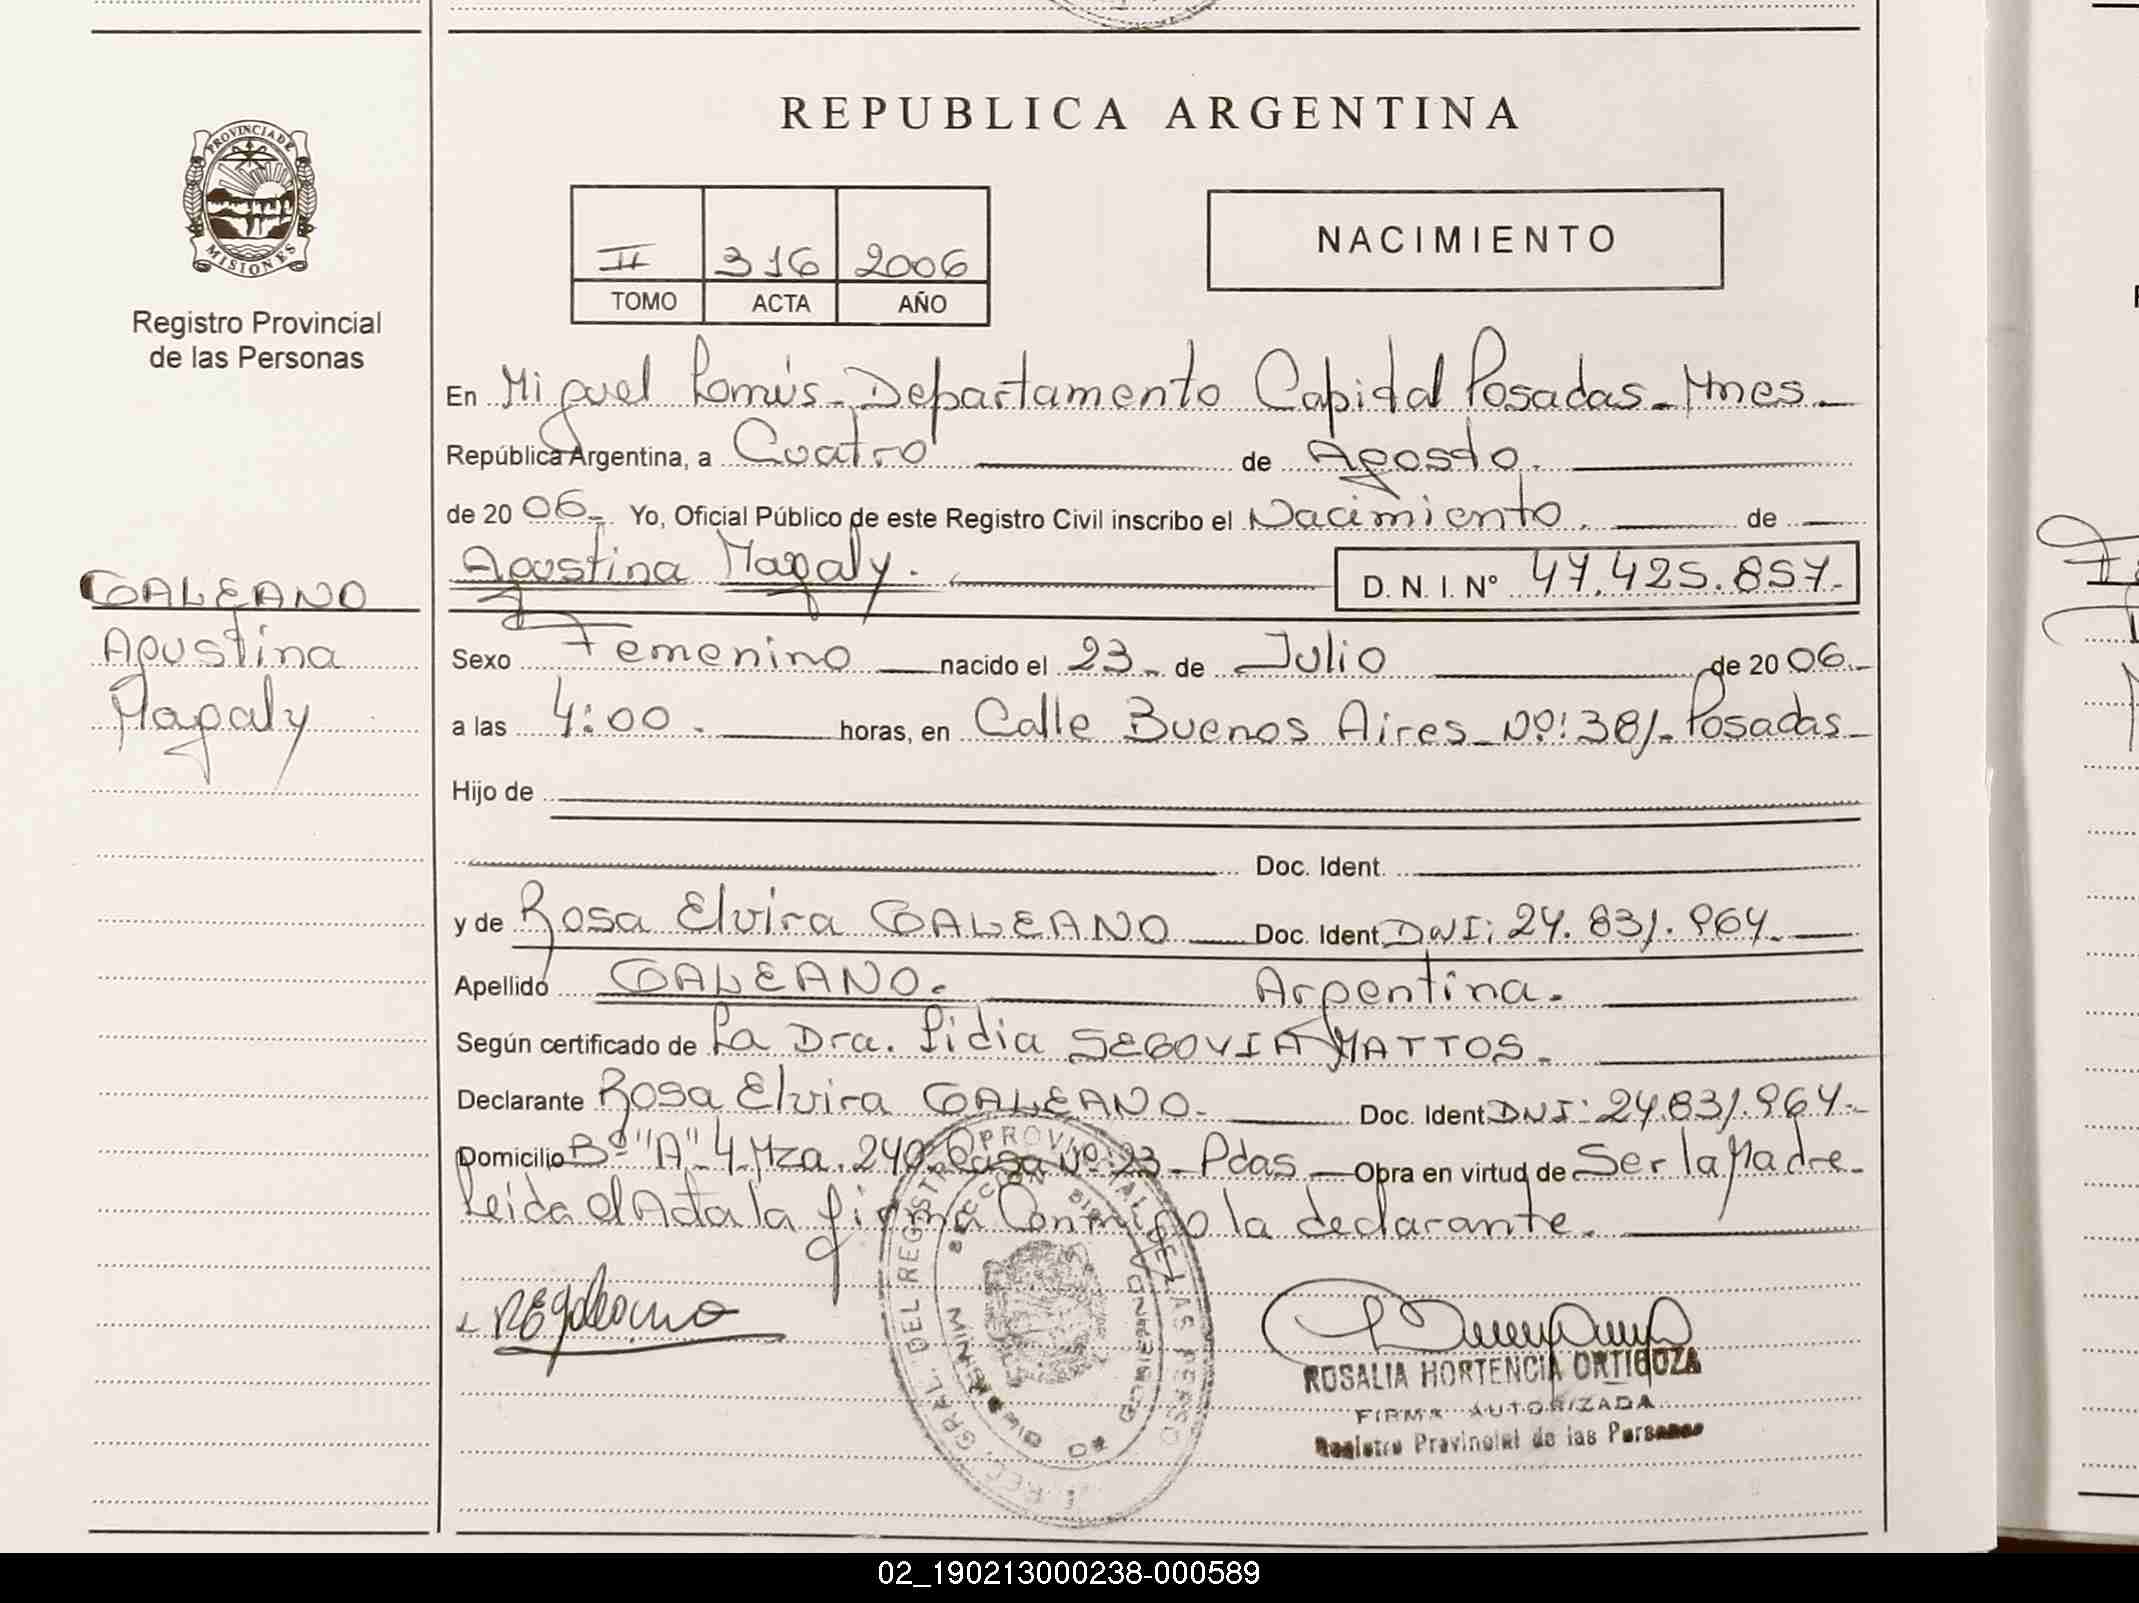 REPUBLICA ARGENTINA
PROVINCIA DE
MISIONES
Registro Provincial
de las Personas
II 316 2006
TOMO ACTA AÑO
NACIMIENTO
En Miguel Lanús - Departamento Capital Posadas - Mnes.
República Argentina, a Cuatro de Agosto.
de 2006.- Yo, Oficial Público de este Registro Civil inscribo el Nacimiento. de
Agustina Magaly. D. N. I. Nº 47.425.857.-
GALEANO
Agustina
Magaly
Sexo Femenino nacido el 23 - de Julio de 2006.-
a las 4:00. horas, en Calle Buenos Aires - Nº: 381 - Posadas -
Hijo de
Doc. Ident.
y de Rosa Elvira GALEANO Doc. Ident. DNI: 24.831.964.
Apellido GALEANO. Argentina.
Según certificado de La Dra. Lidia SEGOVIA MATTOS.
Declarante Rosa Elvira GALEANO. Doc. Ident. DNI: 24.831.964.-
Domicilio Bº "A" - 4 Mza. 240 Casa Nº: 23 - Pdas - Obra en virtud de Ser la Madre.
Leída el Acta la firma Conmigo la declarante.
ROSALIA HORTENCIA ORTIGOZA
FIRMA AUTORIZADA
Registro Provincial de las Personas
02_190213000238-000589